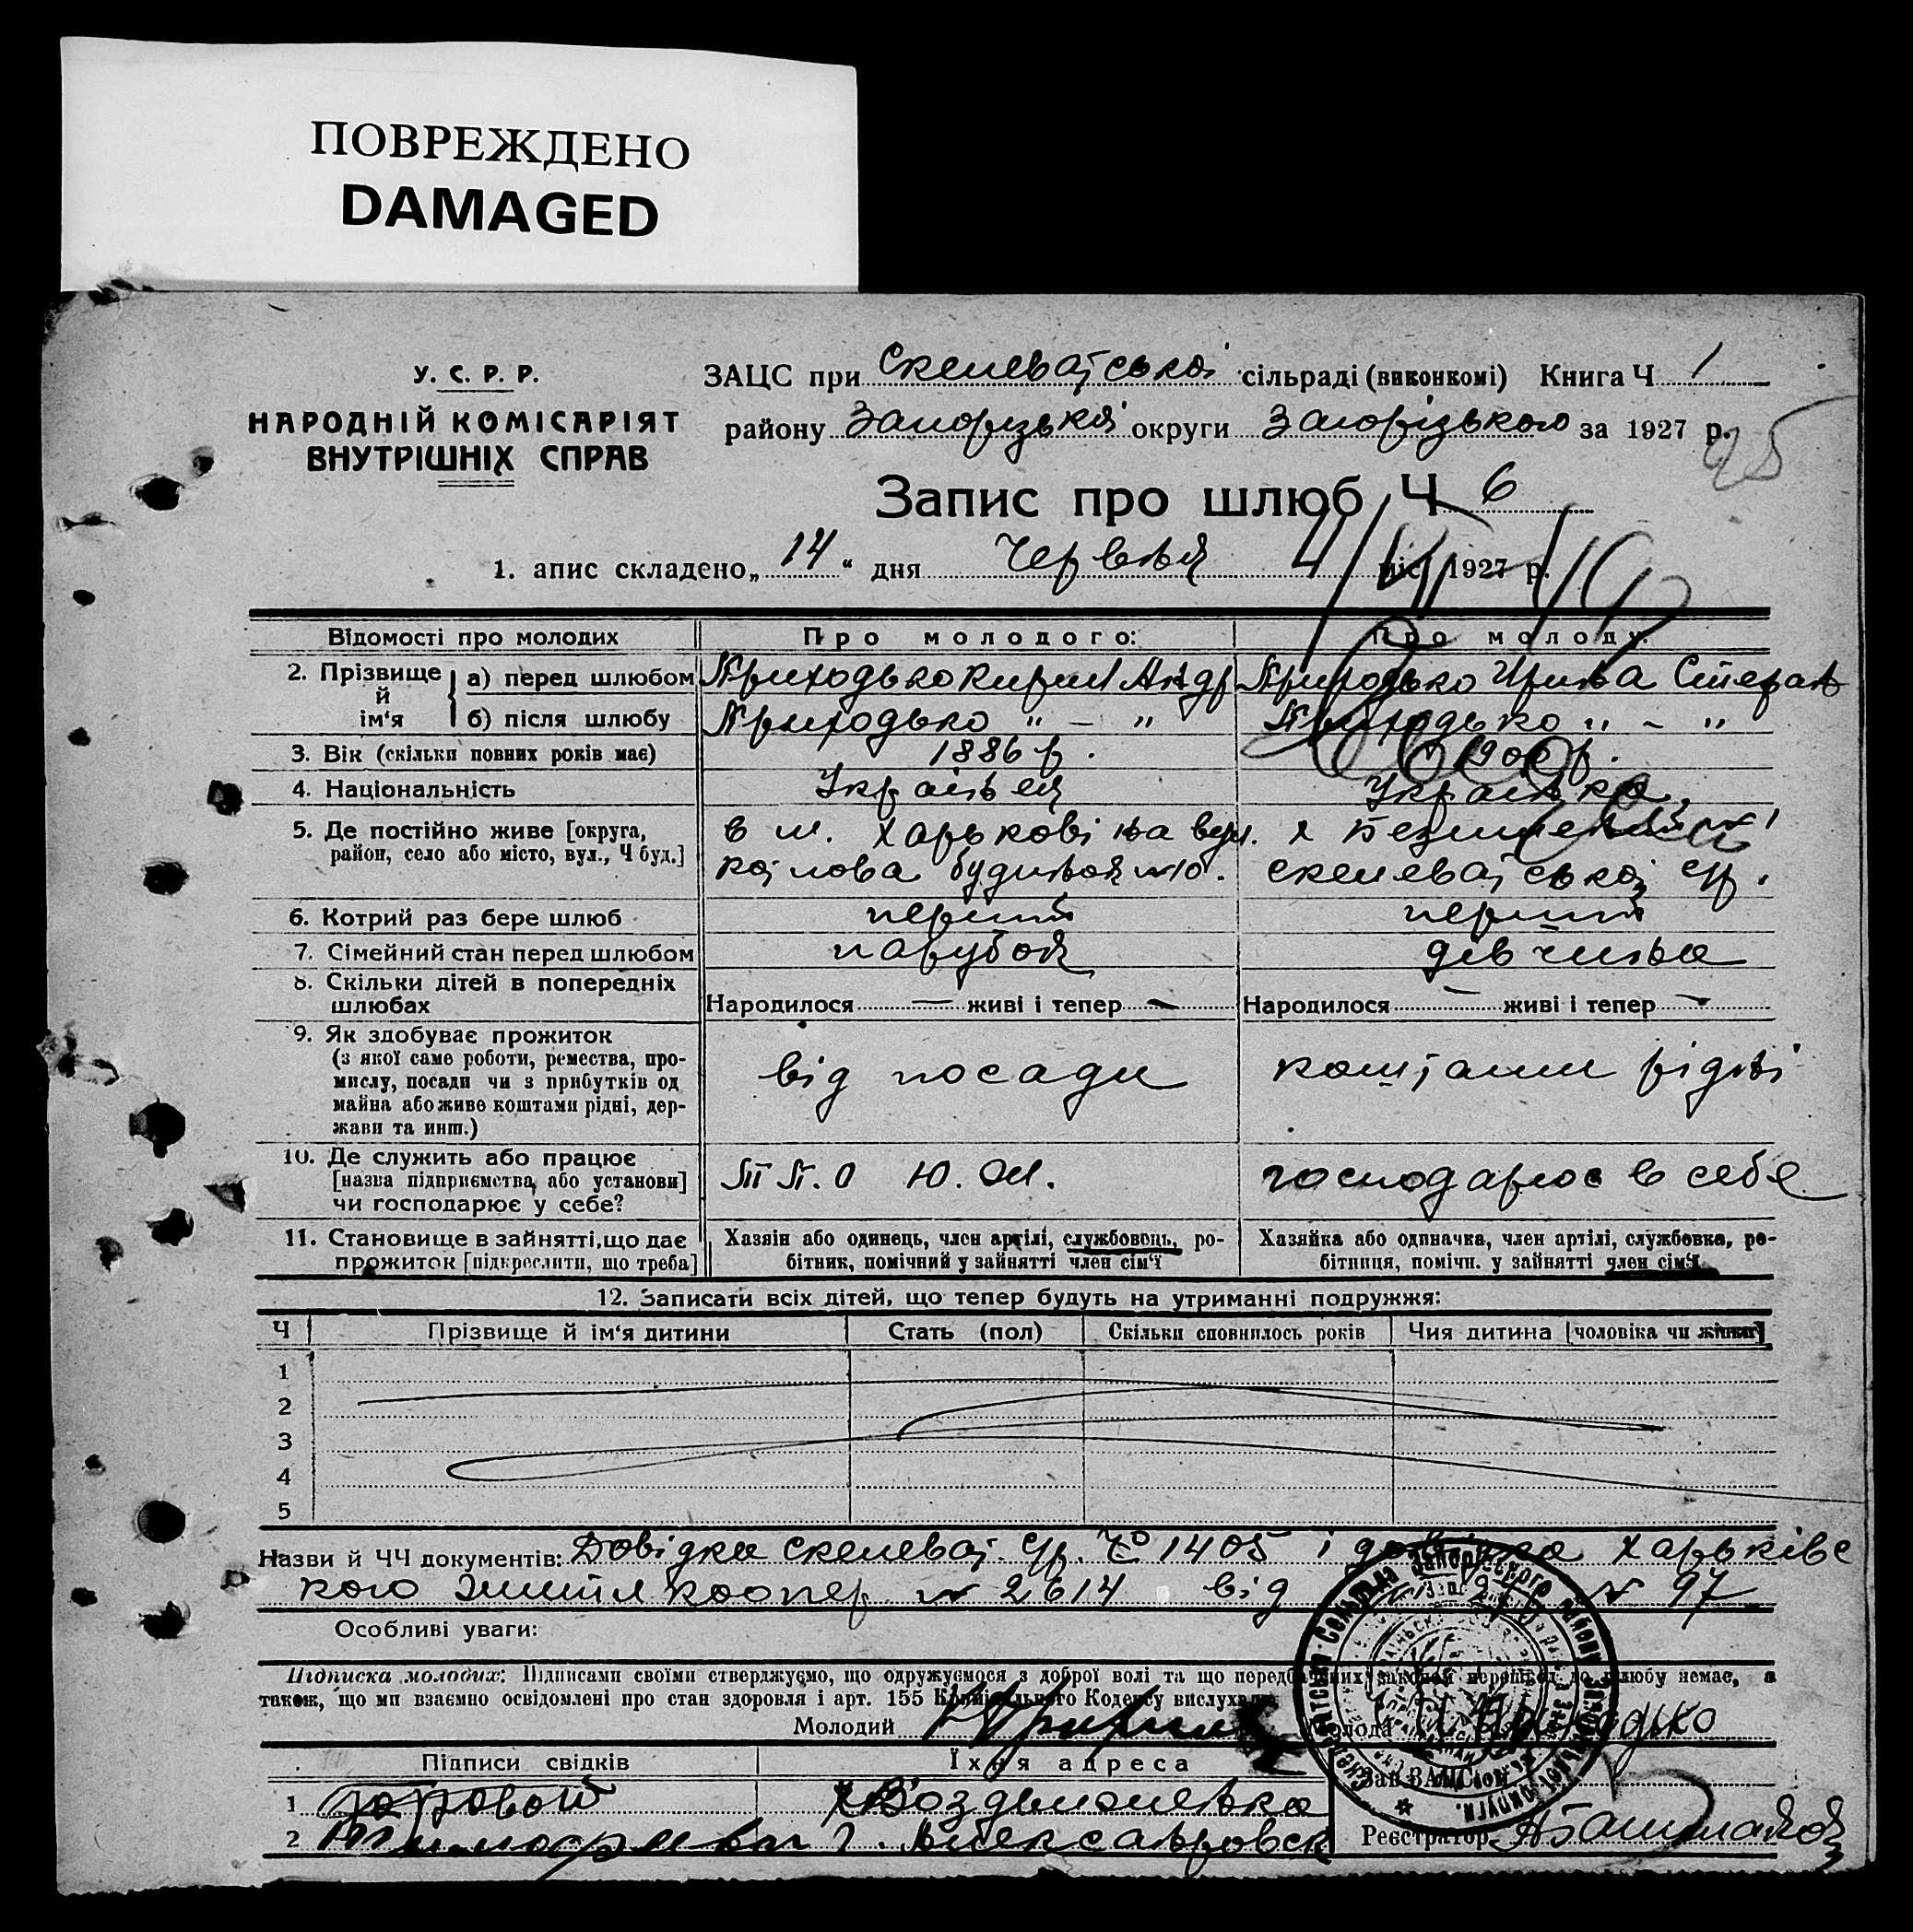 ПОВРЕЖДЕНО
DAMAGED
У. С. Р. Р.
НАРОДНІЙ КОМІСАРІЯТ
ВНУТРІШНІХ СПРАВ
ЗАЦС при Скелеватській сільраді (виконкомі) Книга Ч 1
району Запорізькой округи Запорізького за 1927 р.
Запис про шлюб Ч 6
1. апис складено „14“ дня Червня міс. 1927 р.
Відомості про молодих Про молодого: Про молоду:
2. Прізвище й ім‘я а) перед шлюбом Приходько Кирил Андр Приходько Ирина Степан
б) після шлюбу Приходько " – " Приходько " – "
3. Вік (скільки повних років має) 1886 р. 1900 р.
4. Національність Українец Українка
5. Де постійно живе [округа, район, село або місто, вул., Ч буд.] в м. Харькові на вул.
будинок №10. Скелеватської с/р.
6. Котрий раз бере шлюб перший перший
7. Сімейний стан перед шлюбом парубок дівчина
8. Скільки дітей в попередніх шлюбах Народилося — живі і тепер — Народилося — живі і тепер —
9. Як здобуває прожиток
(з якої саме роботи, ремества, про-
мислу, посади чи з прибутків од
майна або живе коштами рідні, дер-
жави та инш.)
від посади коштами рідні
10. Де служить або працює
[назва підприємства, або установи]
чи господарює у себе?
П П. О Ю. господарює в себе
11. Становище в зайнятті, що дає
прожиток [підкреслити, що треба]
Хазяїн або одинець, член артілі, службовець, ро-
бітник, помічний у зайнятті член сім‘ї
Хазяйка або одиначка, член артілі, службовка, ро-
бітниця, помічн. у зайнятті член сім‘ї
12. Записати всіх дітей, що тепер будуть на утриманні подружжя:
Ч Прізвище й ім‘я дитини Стать (пол) Скільки сповнилось років Чия дитина [чоловіка чи жінки]
1
2
3
4
5
Назви й ЧЧ документів: Довідка Скелеват. с/р. 1405 і довідка Харьківс
кого коопер № 2614 від № 97
Особливі уваги:
Підписка молодих: Підписами своїми стверджуємо, що одружуємося з доброї волі та що передбачених законом перешкод до шлюбу немає, а
також, що ми взаємно освідомлені про стан здоровля і арт. 155 Кримінального Кодексу вислухали
Молодий Молода Приходько
Підписи свідків Їхня адреса
Зав ЗАЦСом
1
2 Александровск
Реєстратор